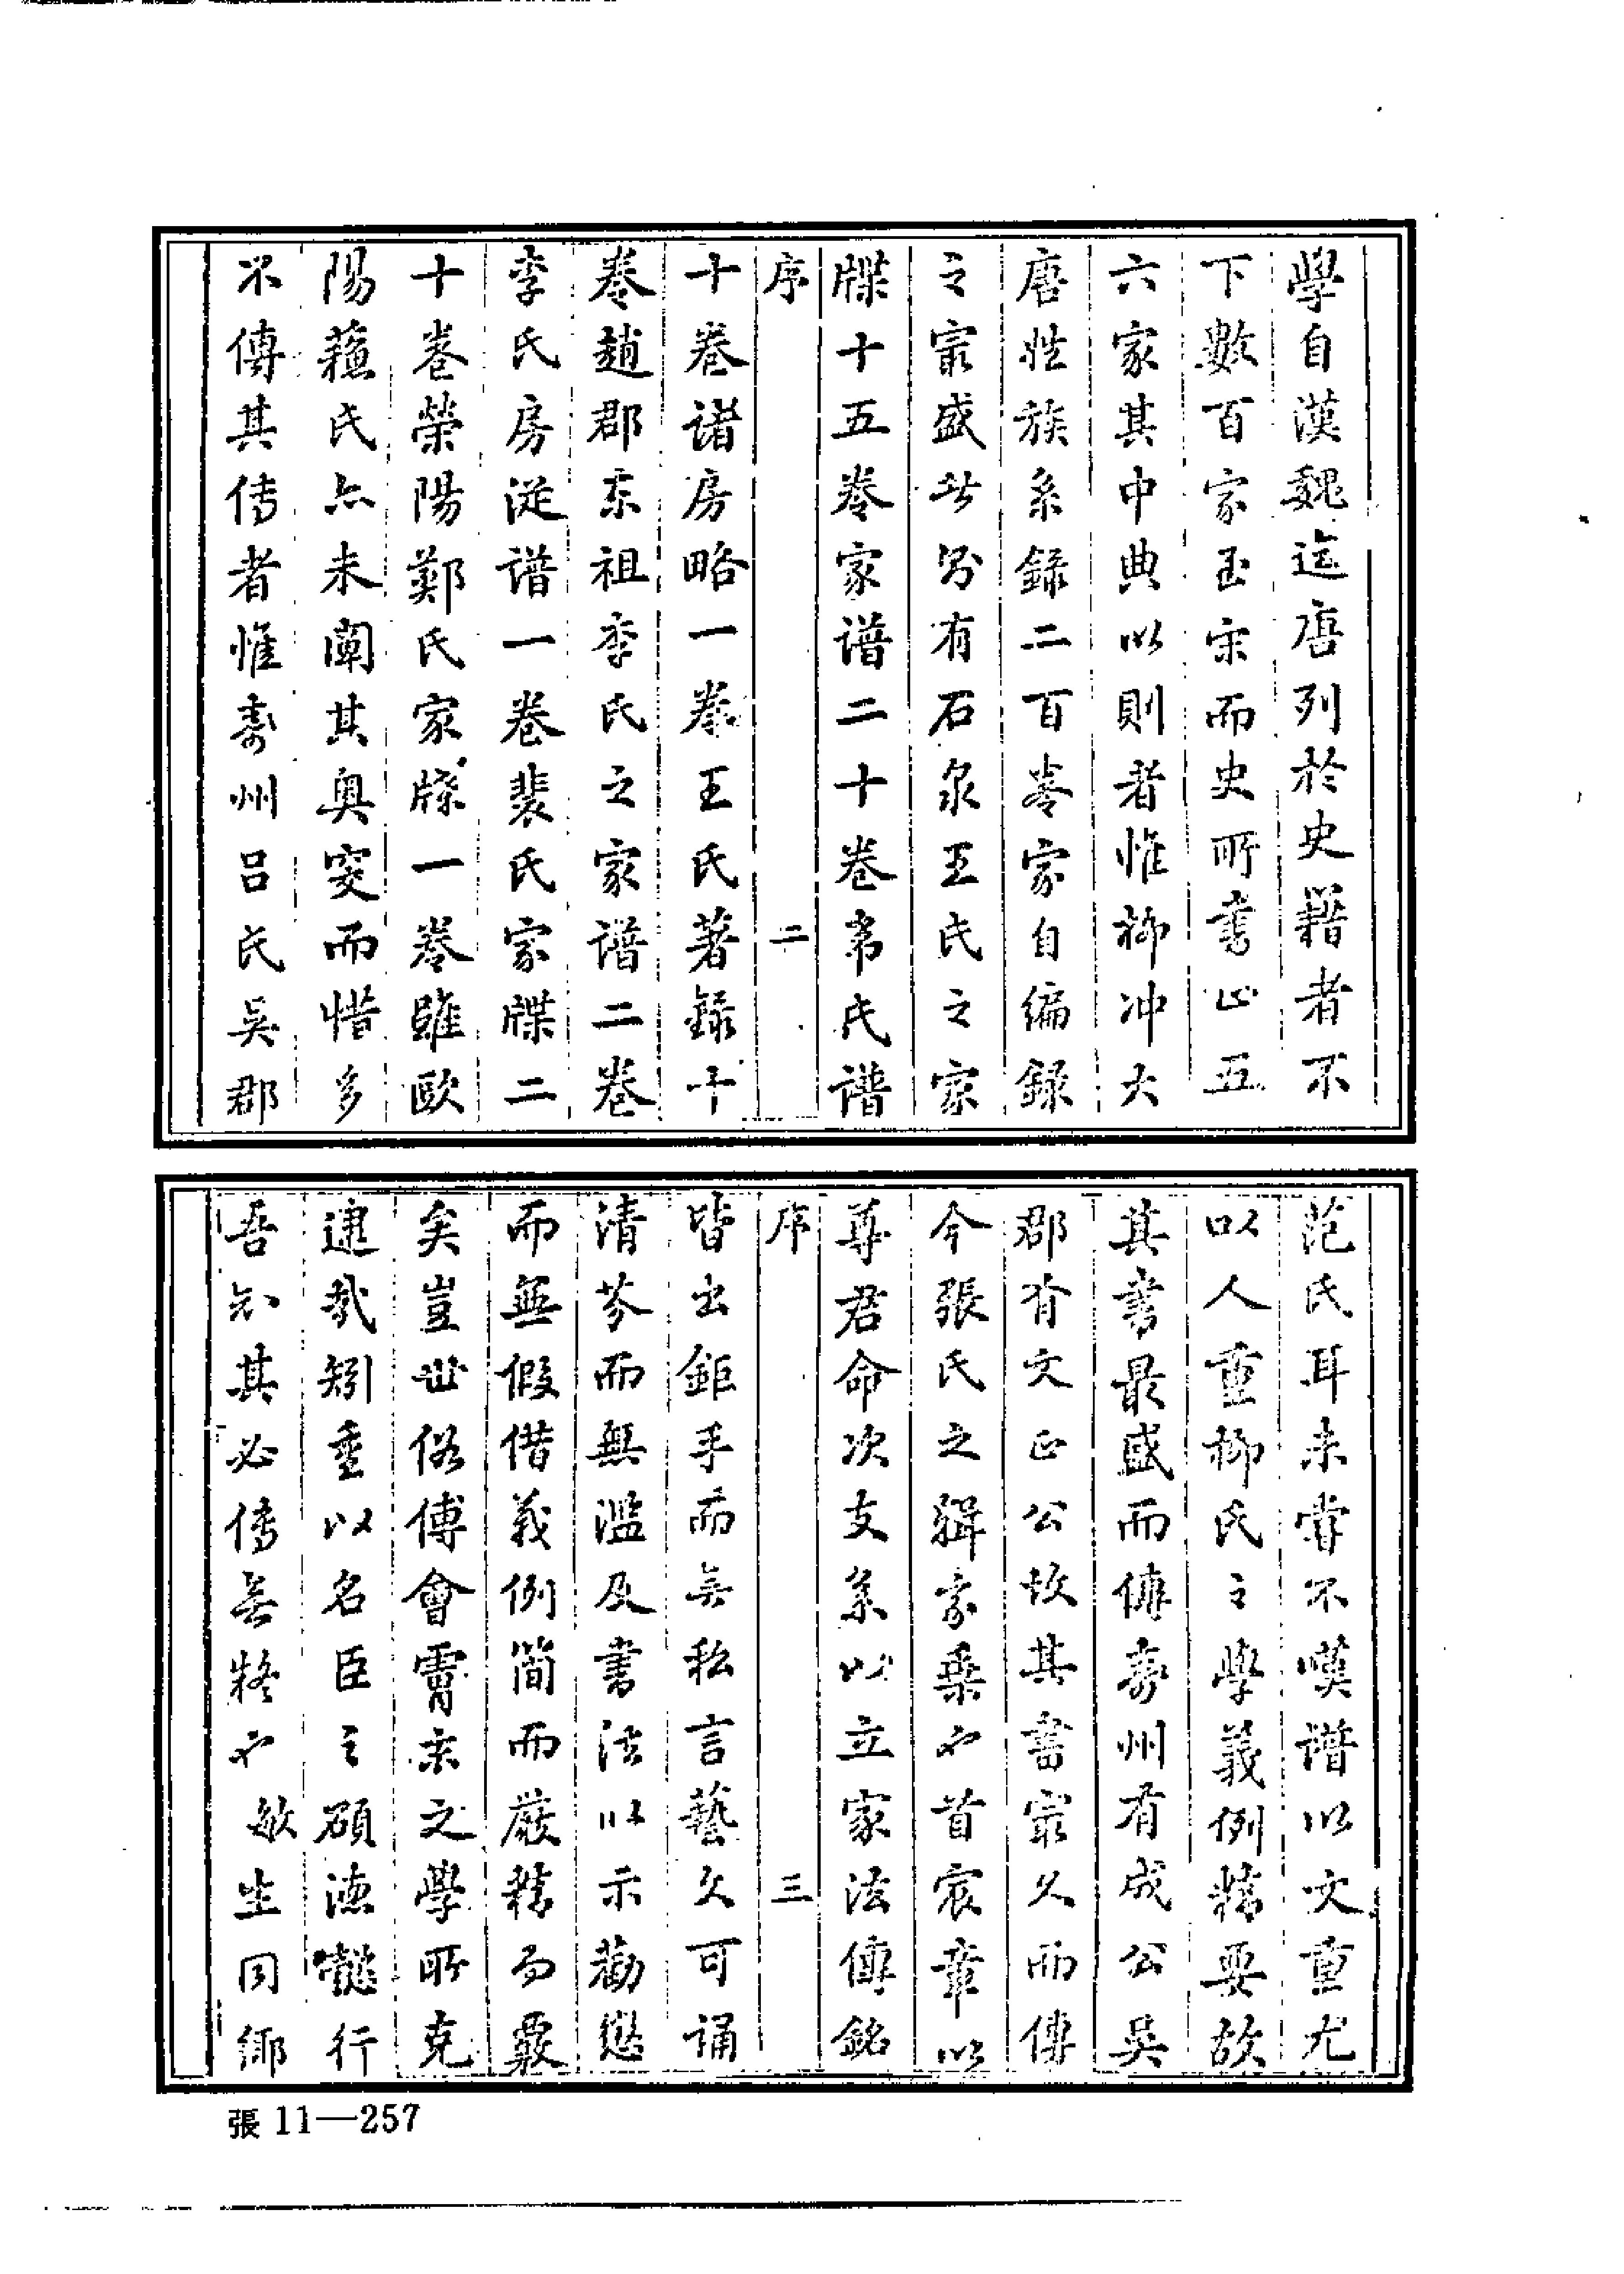 學自漢魏迄唐列於史籍者不
下數百家至宋而史所書止五
六家其中典以則者惟柳冲大
唐姓族系錄二百卷家自編錄
之家最盛者則有石泉王氏之家
牒十五卷家谱二十卷韦氏谱
序
二
十卷諸房略一卷王氏著錄十
卷趙郡东祖李氏之家谱二卷
李氏房從谱一卷裴氏家牒二
十卷榮陽鄭氏家牒一卷雖歐
陽蘓氏亦未闡其奥窔而惜多
不傳其传者惟壽州吕氏吳郡
范氏耳未嘗不嘆谱以文重尤
以人重柳氏之學義例精要故
其書最盛而傳壽州有成公吳
郡有文正公故其書最久而傳
今張氏之輯家乘也首宸章以
尊君命次支系以立家法傳銘
序
三
皆出鉅手而無私言藝文可誦
清芬而無濫及書法以示勸懲
而無假借義例简而嚴精而覈
矣豈世俗傅會冑末之學所克
逮哉矧重以名臣之碩德懿行
吾知其必传無疑也敏生同鄉
張 11—257